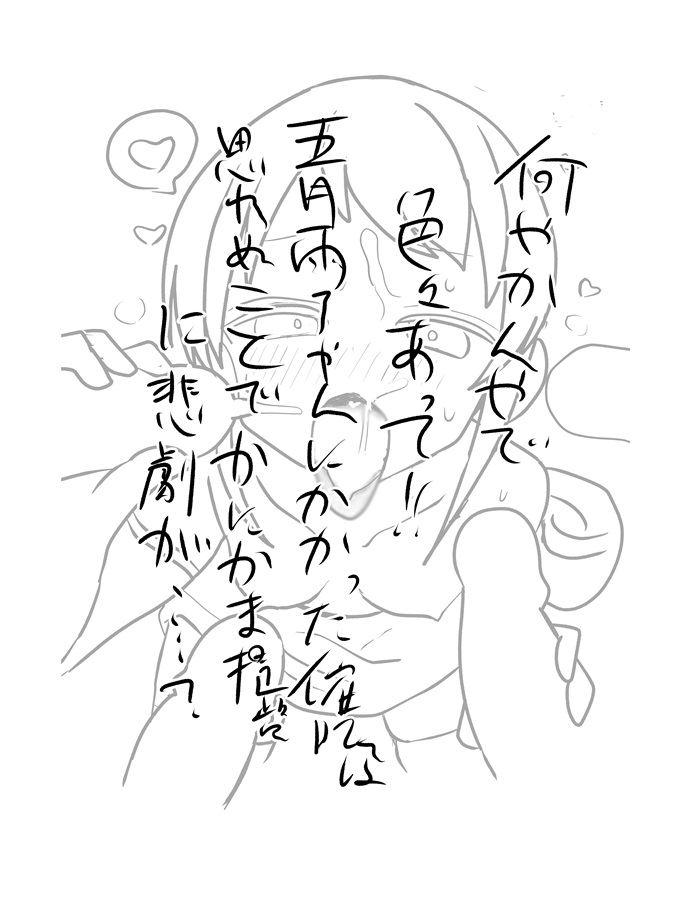 何やかんやで
色々あって!!
五月雨ちゃんにかかった催眠は
思わぬことでかにかま提督
に悲劇が……て